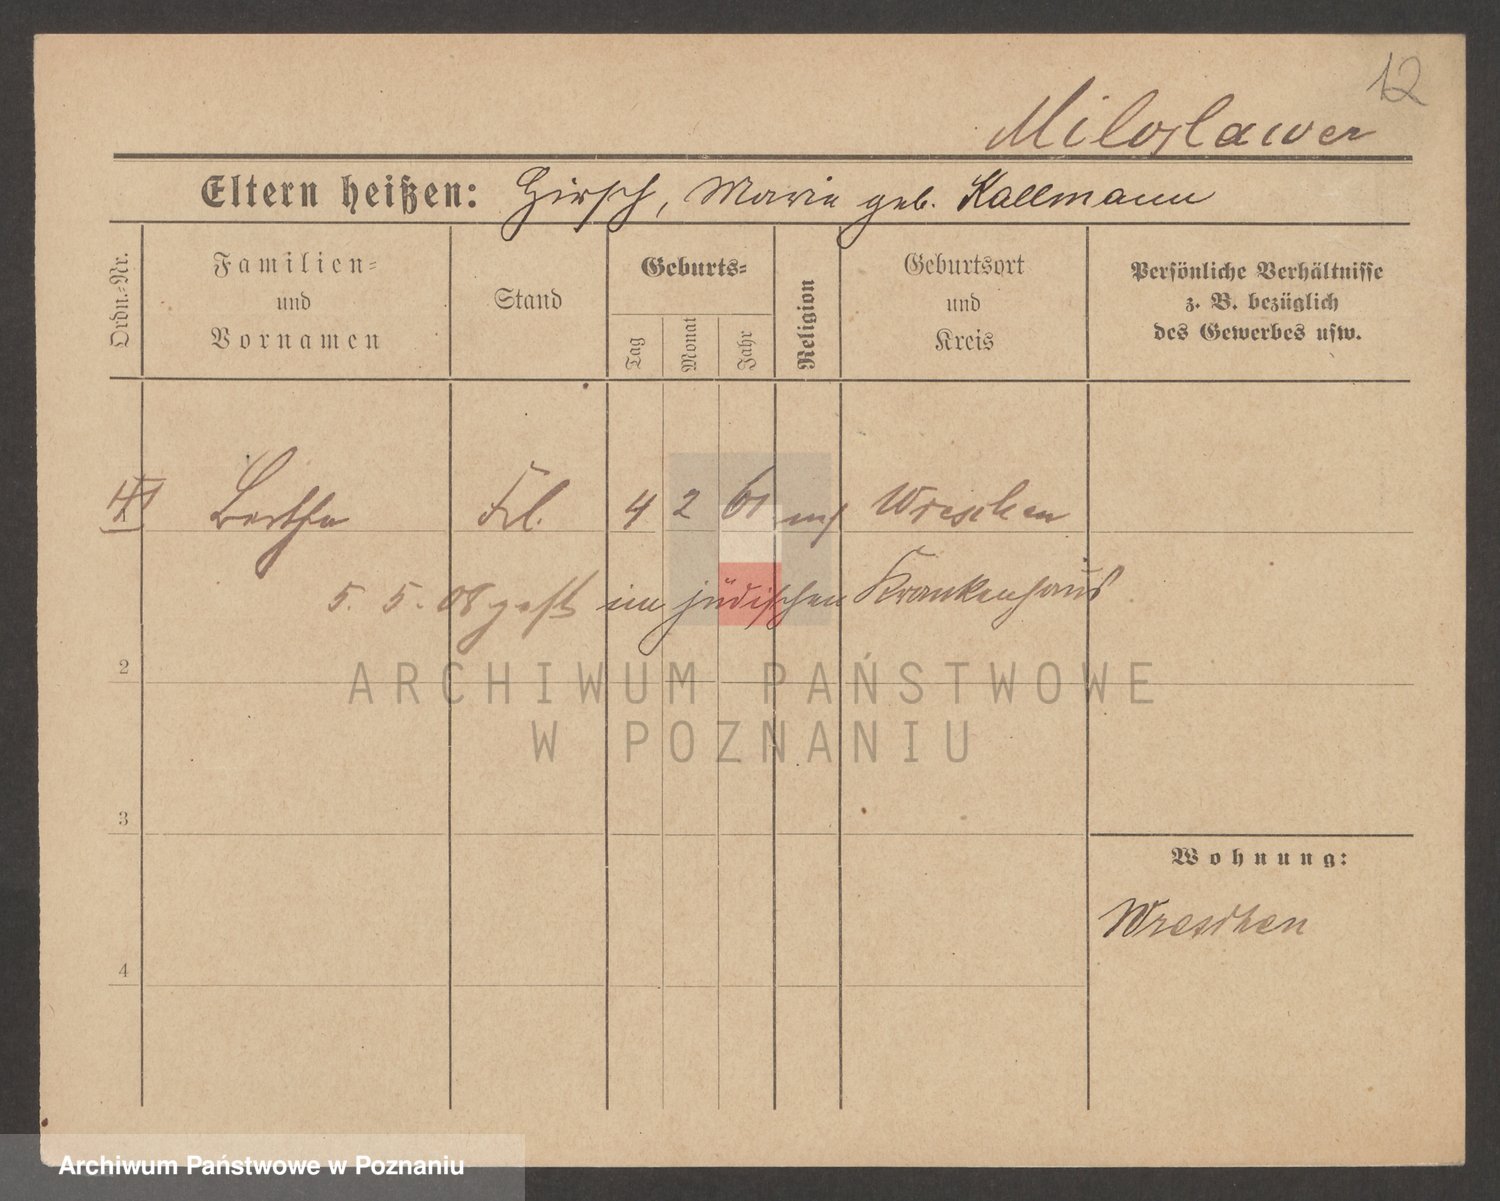 12
Miloslawer
Eltern heißen: Hirsch, Marie geb. Kallmann
Ordn.-Nr.
Familien-
und
Vornamen
Stand
Geburts-
Tag
Monat
Jahr
Religion
Geburtsort
und
Kreis
Persönliche Verhältnisse
z. B. bezüglich
des Gewerbes usw.
Bertha Frl. 4 2 61 mos Wreschen
5. 5. 08 gest. im jüdischen Krankenhaus
2
ARCHIWUM PAŃSTWOWE
W POZNANIU
3
Wohnung:
Wreschen
4
Archiwum Państwowe w Poznaniu